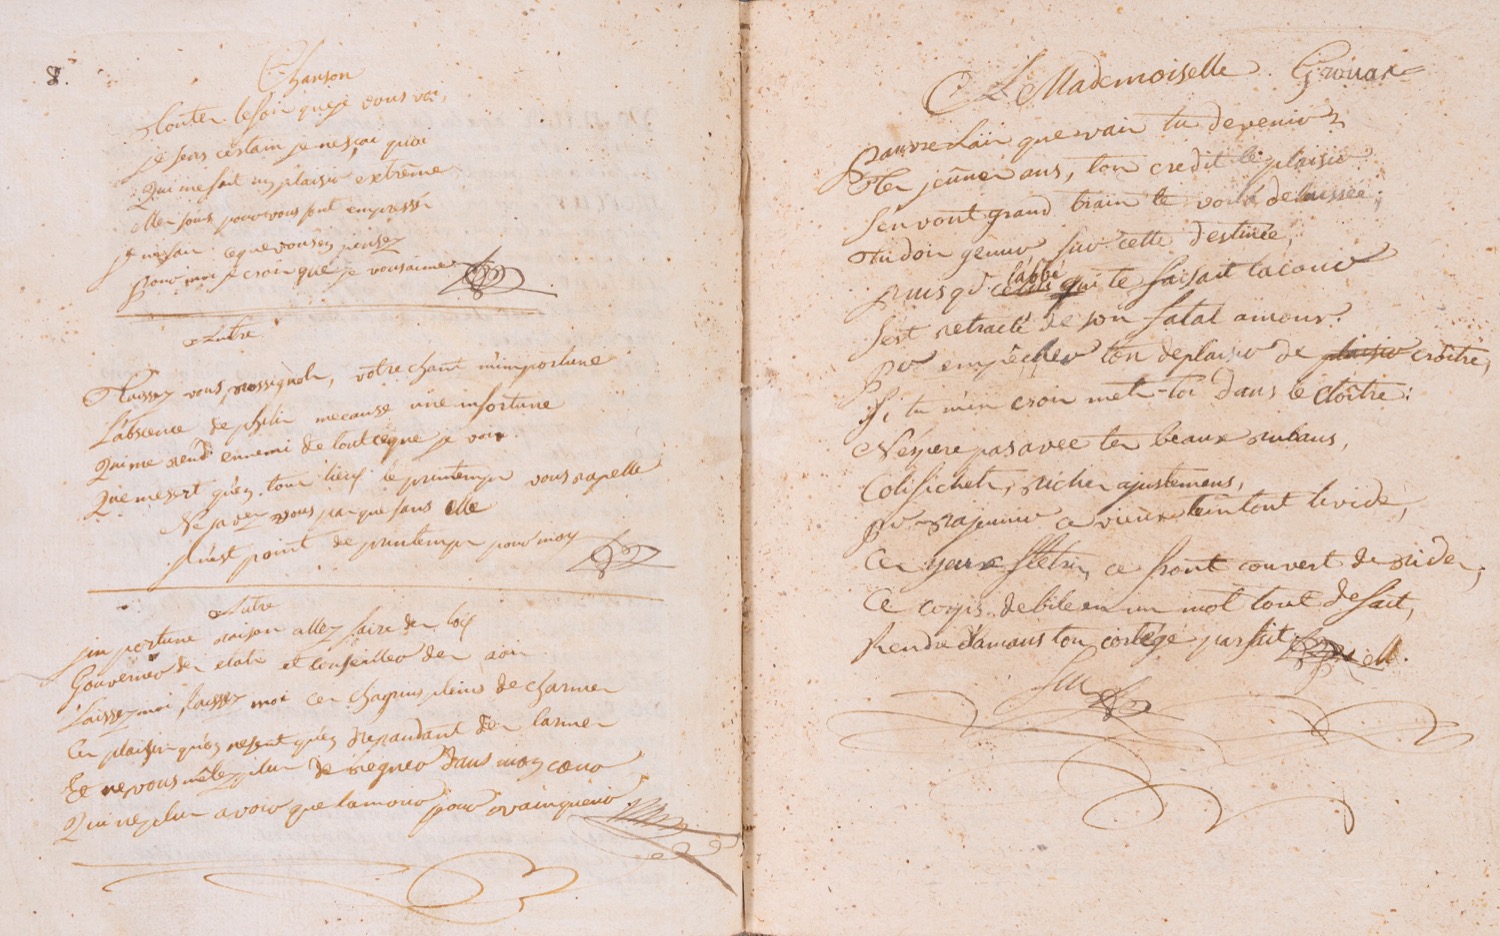 8.
Chanson
Touter les foir que je vous voi,
je sens certain je ne sçai quoi
Qui me fait un plaisir extrême
Mer soins pour vous sont empressé
je ne sai ce que vous en pensez
pour moi je croi que je vous aime
Autre
Taissez vous, rossignols, votre chant m'importune
L'absence de philis me cause une infortune
Qui me rend ennemi de tout ce que je voi.
Que me sert qu'en tous lieux le printemps vous rapelle
Ne savez vous pas que sans elle
Il n'est point de printemps pour moy
Autre
importune raison allez faire des loix
Gouverner des etats et conseiller des rois
Laissez moi, laissez moi ces chagrins pleins de charmes
Ces plaisirs qu'on ne sent qu'en repandant des larmes
Et ne vous mêlez plus de regner dans mon cœur
Qui ne plus avoir que l'amour pour vainqueur
A Mademoiselle Grouar
pauvre que vain tu devenir
Tes jeûnes ans, ton credit le plaisir
s'en vont grand train te voilà delaissée;
Tu dois gemir sur cette destinée,
puisque l'abbé qui te faisait la cour
s'est retracté de son fatal amour.
pr empêcher ton deplaisir de plaisir croître,
Si tu m'en crois mets-toi dans le cloître:
N'espere pas avec tes beaux rubans,
Colifichets, riches ajustemens,
pr rajeunir ce vieux tein tout livide,
Ces yeux fletris, ce front couvert de rides,
Ce corps debile en un mot tout defait,
Rendre d'amans ton cortège parfait
fin